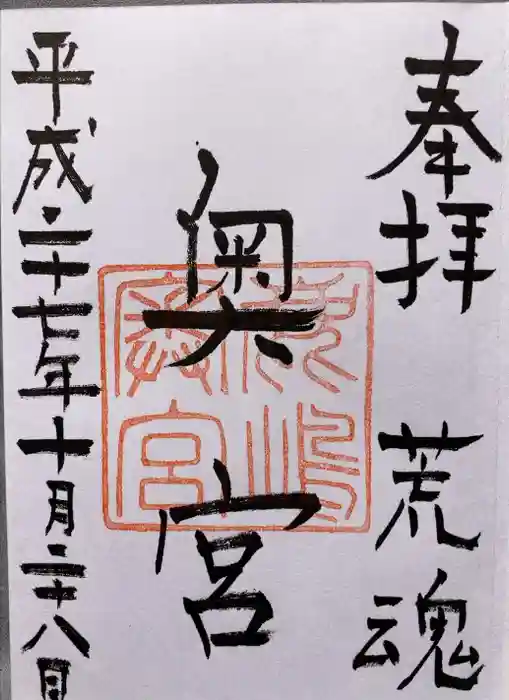 奉拝 荒魂
奥宮
鹿嶋
奥宮
平成二十七年十月二十八日